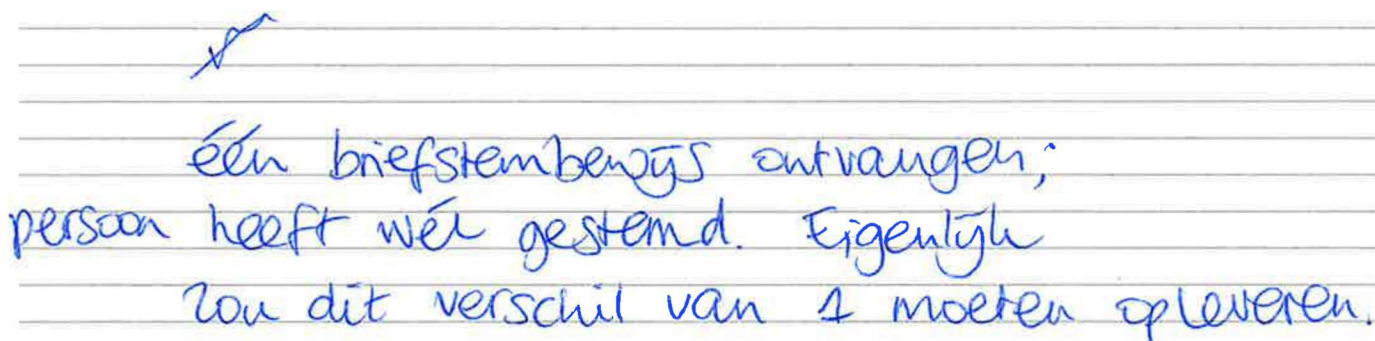 één briefstembewijs ontvangen;
persoon heeft wél gestemd. Eigenlijk
zou dit verschil van 1 moeten opleveren.